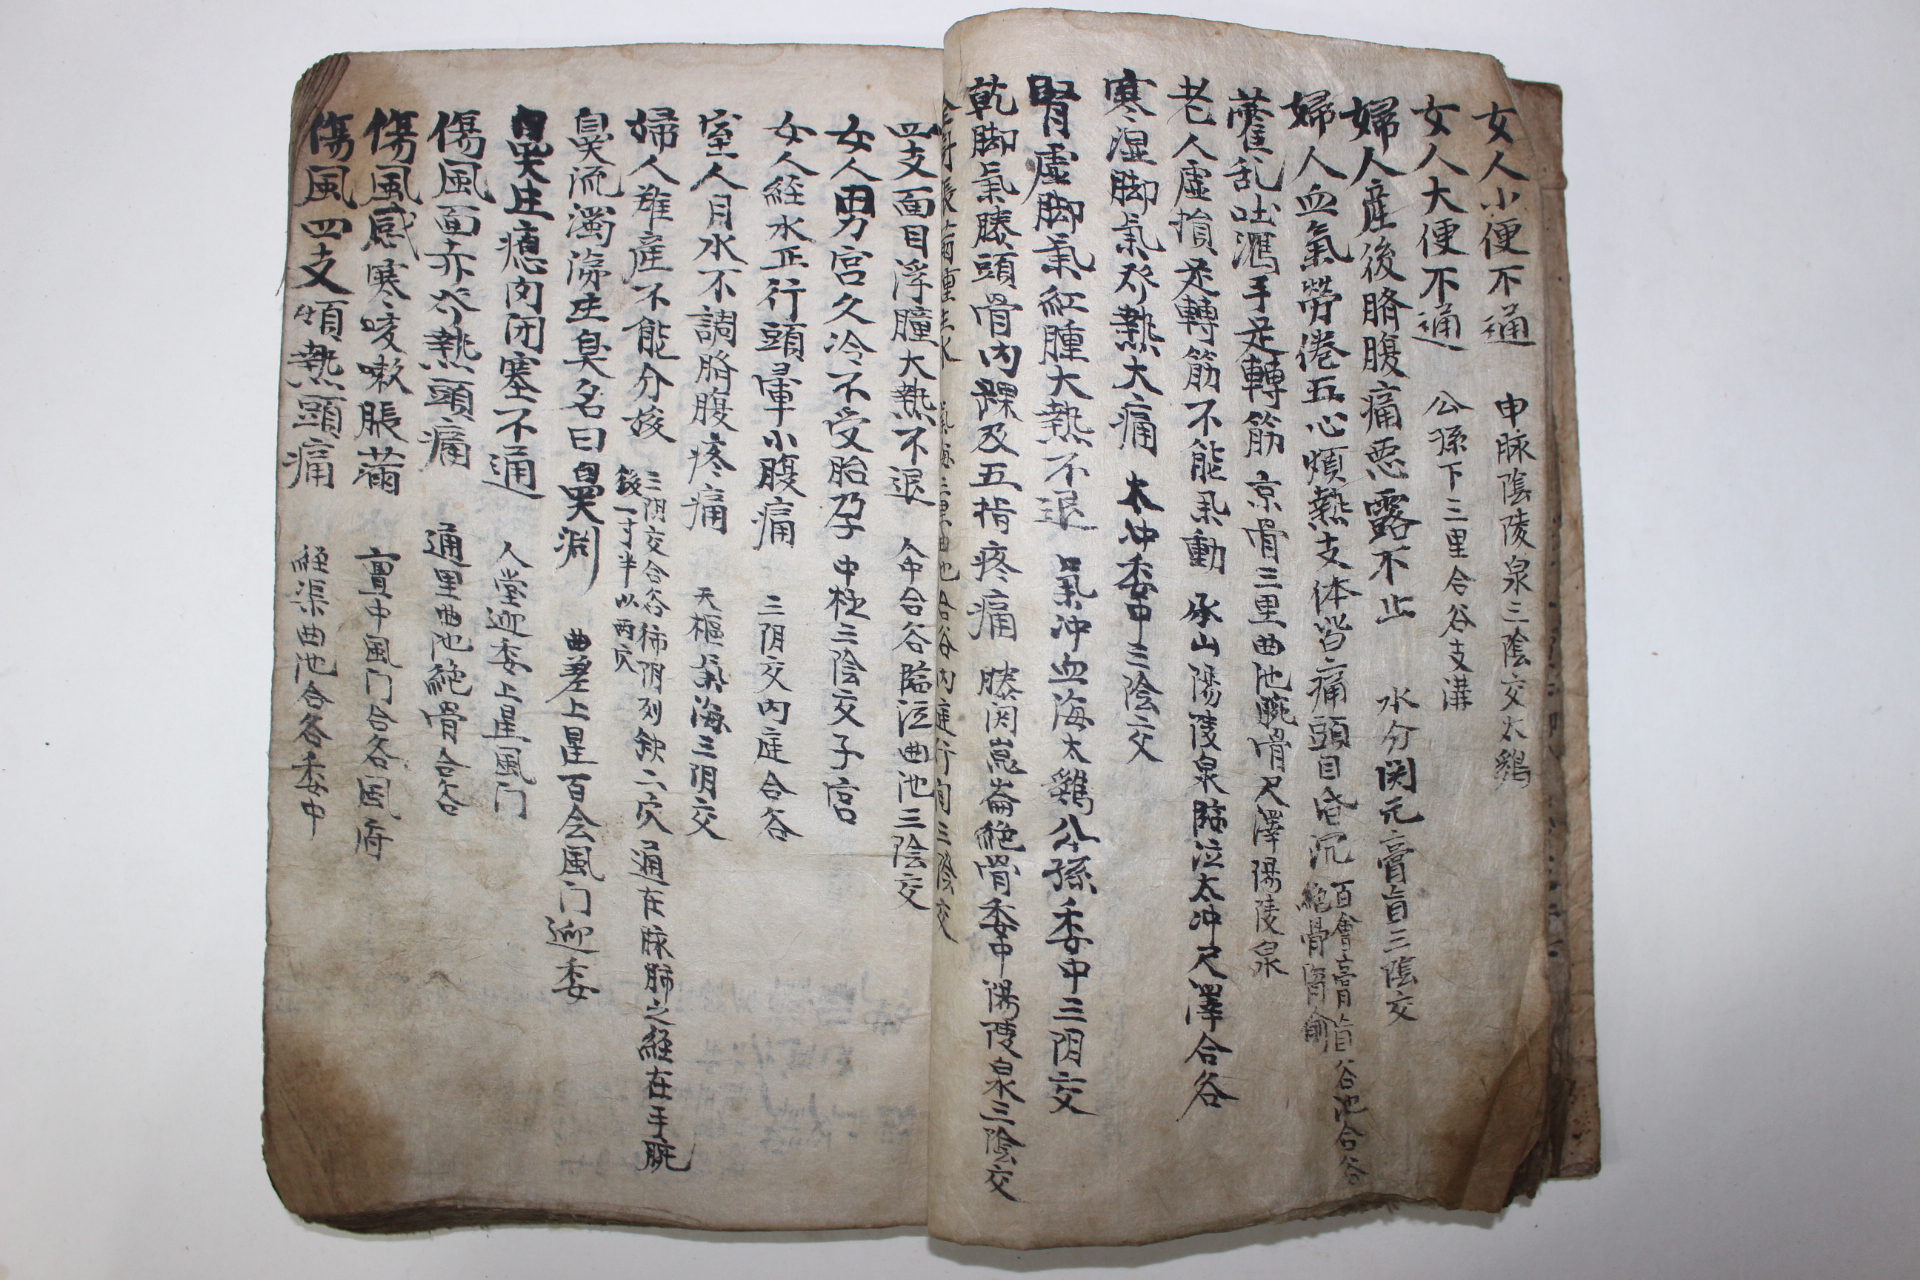 女人小便不通 申脉陰陵泉三陰交太鷄
女人大便不通 公孫下三里合谷支溝
婦人産後臍腹痛惡露不止 水分関元膏肓三陰交
婦人血氣勞倦五心煩熱支体皆痛頭目昏沉 百會膏肓谷池合谷絶骨腎俞
藿乱吐瀉手足轉筋 京骨三里曲池腕骨尺澤陽陵泉
老人虛損足轉筋不能杲動 承山陽陵泉臨泣太冲尺澤合谷
寒湿脚氣發熱大痛 太冲委中三陰交
腎虛脚氣紅腫大熱不退 氣冲血海太鷄公孫委中三阴交
乾脚氣膝頭骨內踝及五指疼痛 膝関崑崙絶骨委中陽陵泉三陰交
合谷內庭行间三陰交
四支面目浮腫大熱不退 人中合谷臨泣曲池三陰交
女人男宮久冷不受胎孕 中極三陰交子宮
女人経水正行頭暈小腹痛 三阴交內庭合谷
室人月水不調臍腹疼痛 天樞氣海三阴交
婦人難産不能分娩 三阴交合谷
鼻流濁涕生臭名曰鼻渊 曲差上星百会風门迎委
鼻生瘜肉闭塞不通 人堂迎委上星風门
傷風面赤發熱頭痛 通里曲池絶骨合谷
傷風感寒咳嗽脹滿 亶中風门合谷風府
傷風四支煩熱頭痛 経渠曲池合谷委中